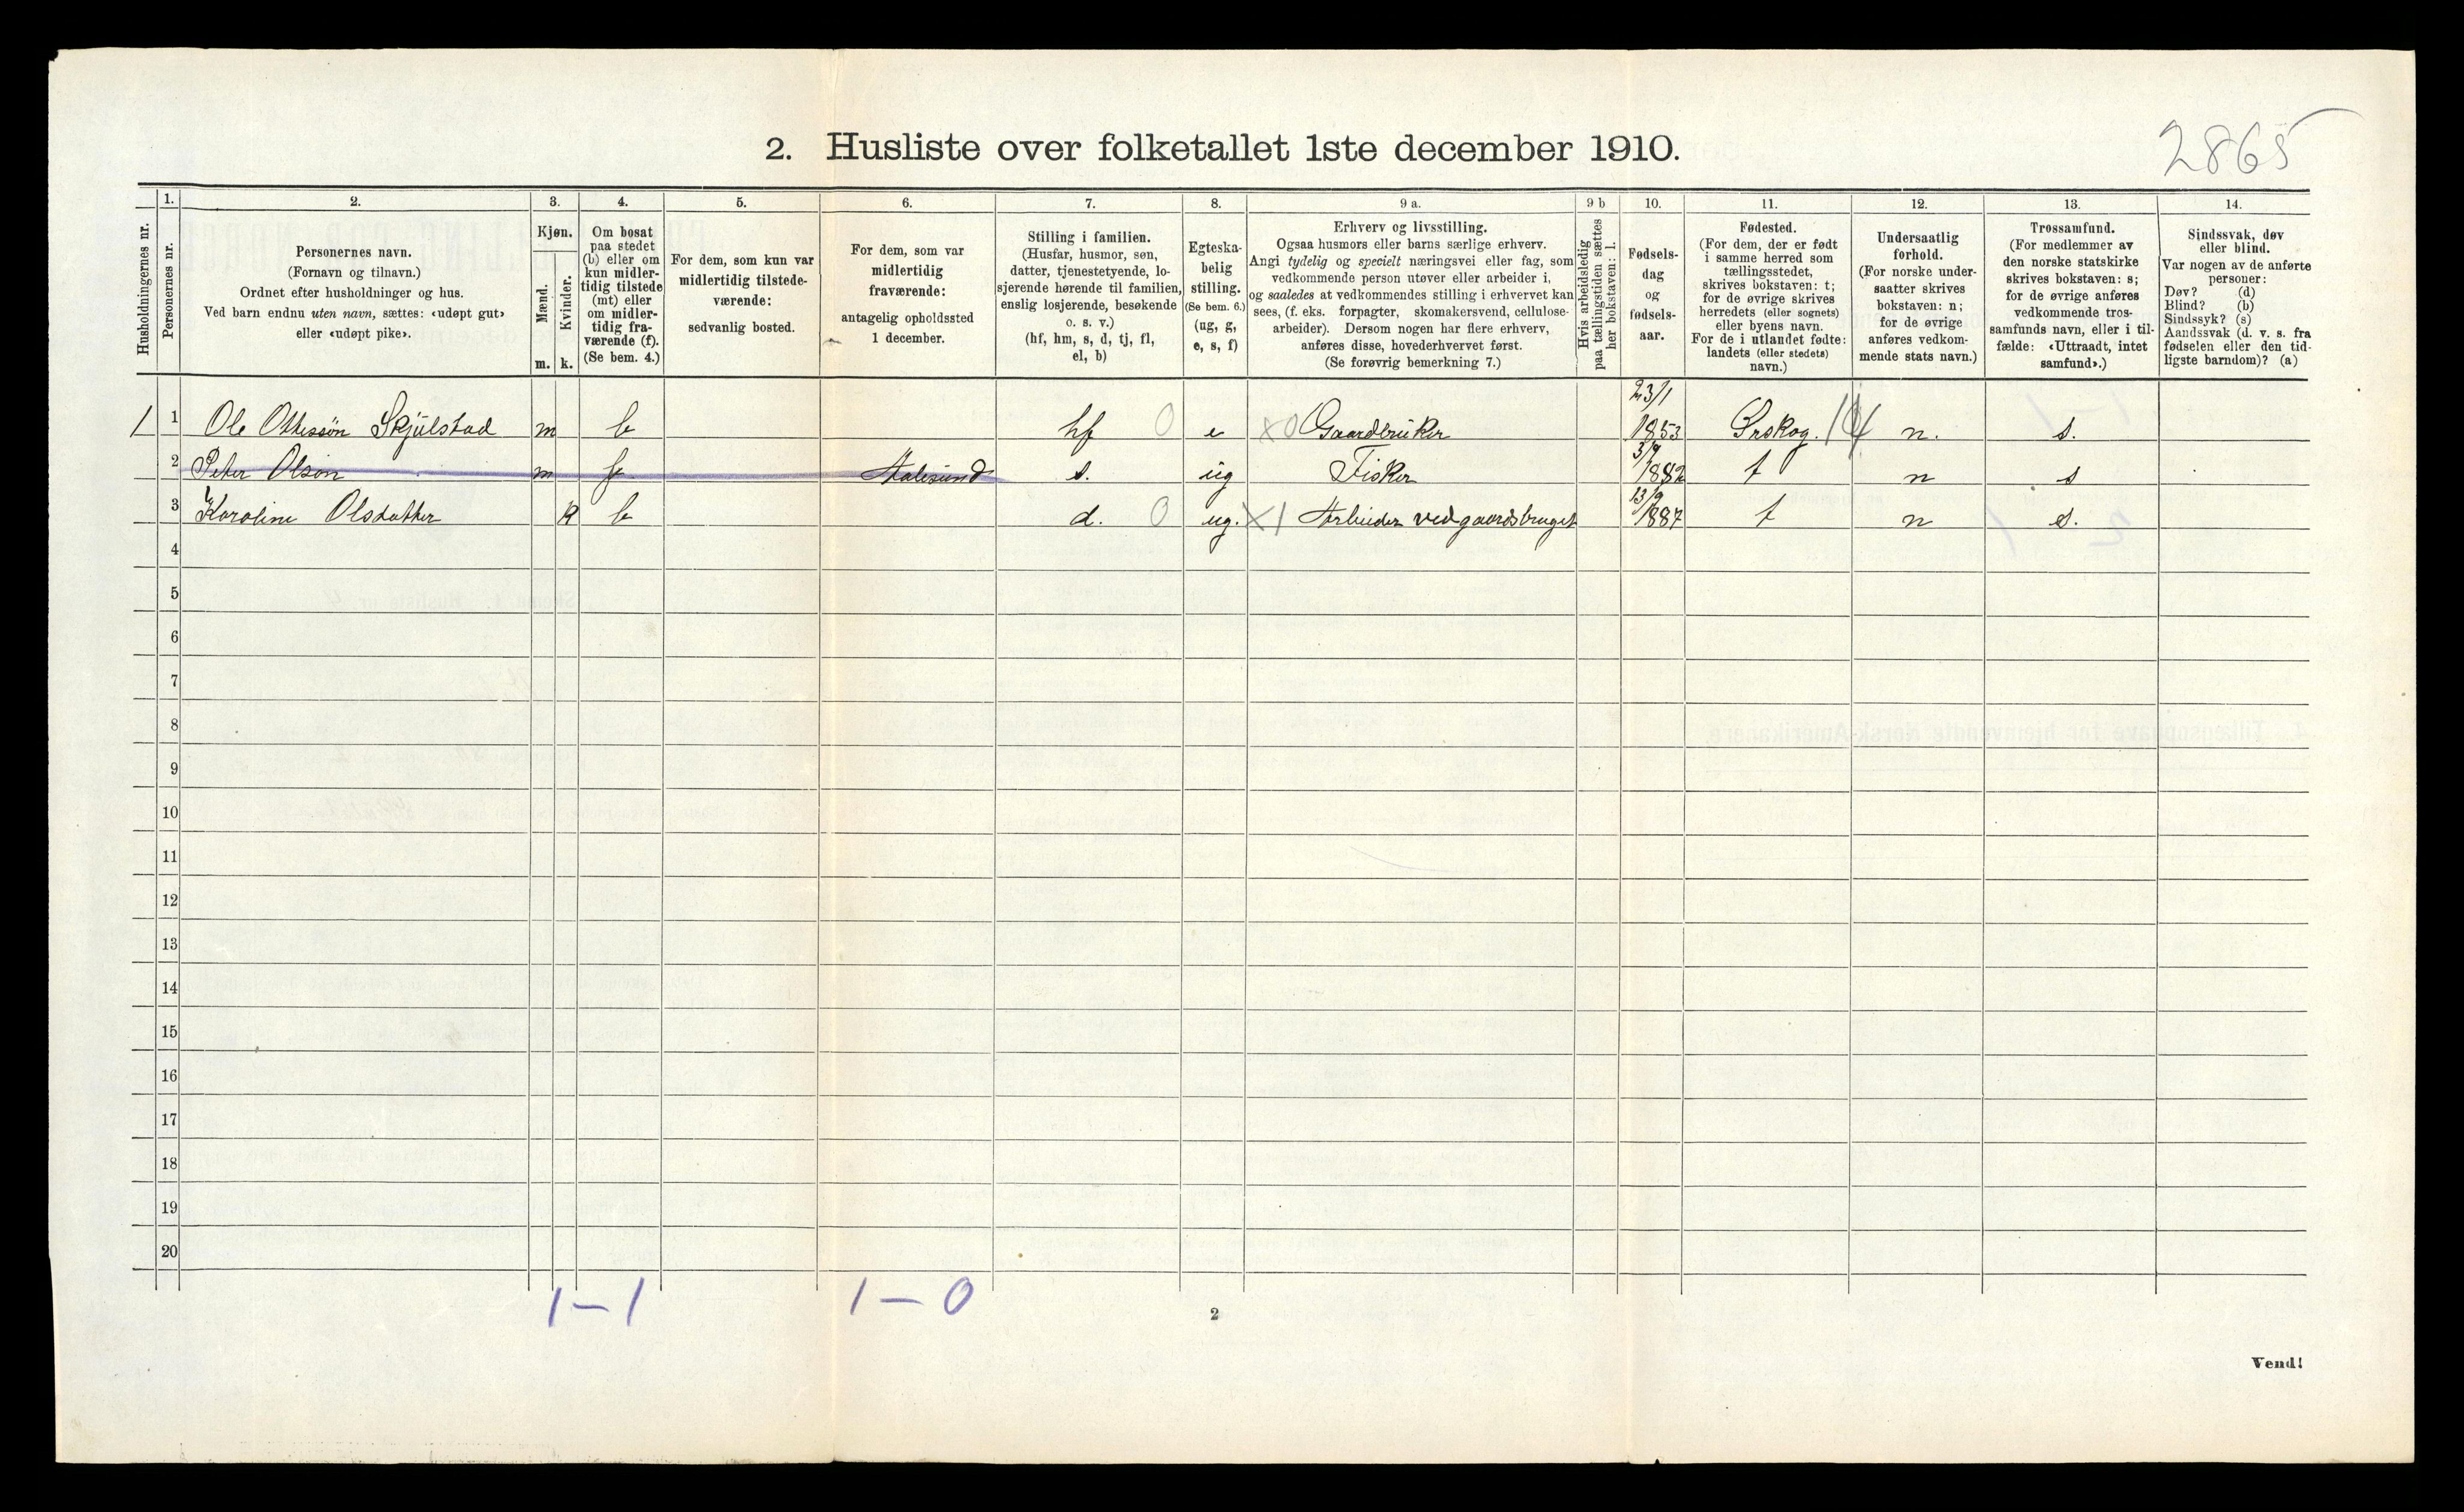 2865
2. Husliste over folketallet 1ste december 1910.
Husholdningernes nr.
1. Personernes nr.
2. Personernes navn.
(Fornavn og tilnavn.)
Ordnet efter husholdninger og hus.
Ved barn endnu uten navn, sættes: «udøpt gut»
eller «udøpt pike».
3. Kjøn.
Mænd. m.
Kvinder. k.
4. Om bosat
paa stedet
(b) eller om
kun midler-
tidig tilstede
(mt) eller
om midler-
tidig fra-
værende (f).
(Se bem. 4.)
5. For dem, som kun var
midlertidig tilstede-
værende:
sedvanlig bosted.
6. For dem, som var
midlertidig
fraværende:
antagelig opholdssted
1 december.
7. Stilling i familien.
(Husfar, husmor, søn,
datter, tjenestetyende, lo-
sjerende hørende til familien,
enslig losjerende, besøkende
o. s. v.)
(hf, hm, s, d, tj, fl,
el, b)
8. Egteska-
belig
stilling.
(Se bem. 6.)
(ug, g,
e, s, f)
9 a. Erhverv og livsstilling.
Ogsaa husmors eller barns særlige erhverv.
Angi tydelig og specielt næringsvei eller fag, som
vedkommende person utøver eller arbeider i,
og saaledes at vedkommendes stilling i erhvervet kan
sees, (f. eks. forpagter, skomakersvend, cellulose-
arbeider). Dersom nogen har flere erhverv,
anføres disse, hovederhvervet først.
(Se forøvrig bemerkning 7.)
9 b Hvis arbeidsledig
paa tællingstiden sættes
her bokstaven: l.
10. Fødsels-
dag
og
fødsels-
aar.
11. Fødested.
(For dem, der er født
i samme herred som
tællingsstedet,
skrives bokstaven: t;
for de øvrige skrives
herredets (eller sognets)
eller byens navn.
For de i utlandet fødte:
landets (eller stedets)
navn.)
12. Undersaatlig
forhold.
(For norske under-
saatter skrives
bokstaven: n;
for de øvrige
anføres vedkom-
mende stats navn.)
13. Trossamfund.
(For medlemmer av
den norske statskirke
skrives bokstaven: s;
for de øvrige anføres
vedkommende tros-
samfunds navn, eller i til-
fælde: «Uttraadt, intet
samfund».)
14. Sindssvak, døv
eller blind.
Var nogen av de anførte
personer:
Døv? (d)
Blind? (b)
Sindssyk? (s)
Aandssvak (d. v. s. fra
fødselen eller den tid-
ligste barndom)? (a)
1 1 Ole Ottessøn Skjülstad m b hf 0 e X0 Gaardbrüker 23/1 1853 Ørskog. n. s.
2 Peter Olsøn m f Aalesünd s. üg Fisker 3/9 1882 t n s
3 Karoline Olsdatter k b d. 0 ug. X1 Arbeider ved gaardsbruget 13/9 1887 t n s.
4
5
6
7
8
9
10
11
12
13
14
15
16
17
18
19
20
1 – 1 1 – 0
2
Vend!